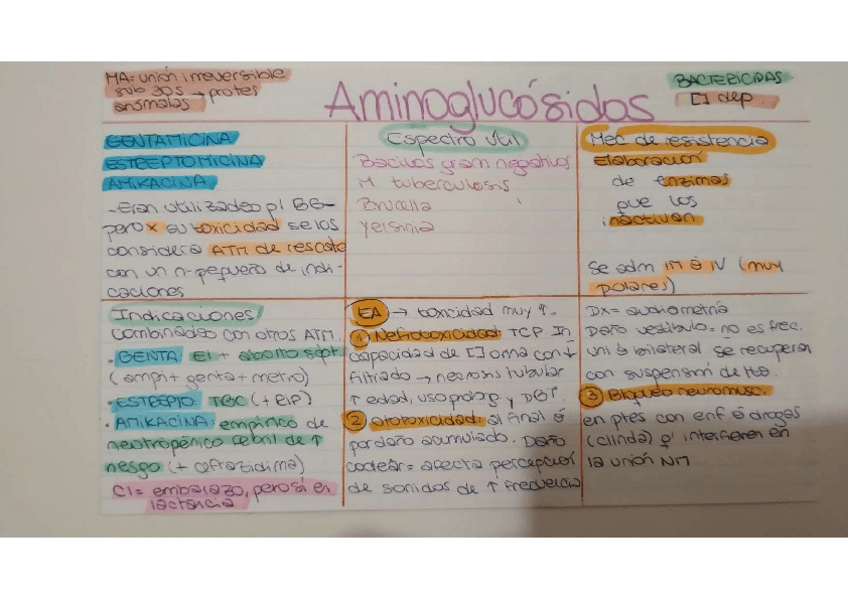 MA= unión irreversible
sub 30s → protes
anómalas
Aminoglucósidos
BACTERICIDAS
[] dep.
GENTAMICINA
ESTREPTOMICINA
AMIKACINA
-Eran utilizados p/ BG-
pero x su toxicidad se los
considera ATM de rescate
con un n- pequeño de indi-
caciones
Espectro útil
Bacilos gram negativos
M. tuberculosis
Brucella
Yersinia
Mec de resistencia
Elaboración
de enzimas
que los
inactivan
Se adm IM ó IV (muy
polares)
Indicaciones
Combinados con otros ATM.
· GENTA EI + aborto sept
(ampi+ genta+ metro)
· ESTREPTO TBC (+ RIP)
· AMIKACINA empírico de
neutropénico febril de ↑
riesgo (+ ceftazidima)
CI= embarazo, pero sí en
lactancia
EA → toxicidad muy ↑.
1 Nefrotoxicidad: TCP. In
capacidad de [] orina con ↓
filtrado → necrosis tubular
↑ edad, uso prolong y DBT.
2 ototoxicidad: al final ó
por daño acumulado. Daño
coclear= afecta percepción
de sonidos de ↑ frecuencia
DX= audiometría
Daño vestibular= no es frec.
uni ó bilateral se recuperan
con suspensión de tto.
3 Bloqueo neuromusc.
en ptes con enf ó drogas
(clinda) q' interfieren en
la unión NM